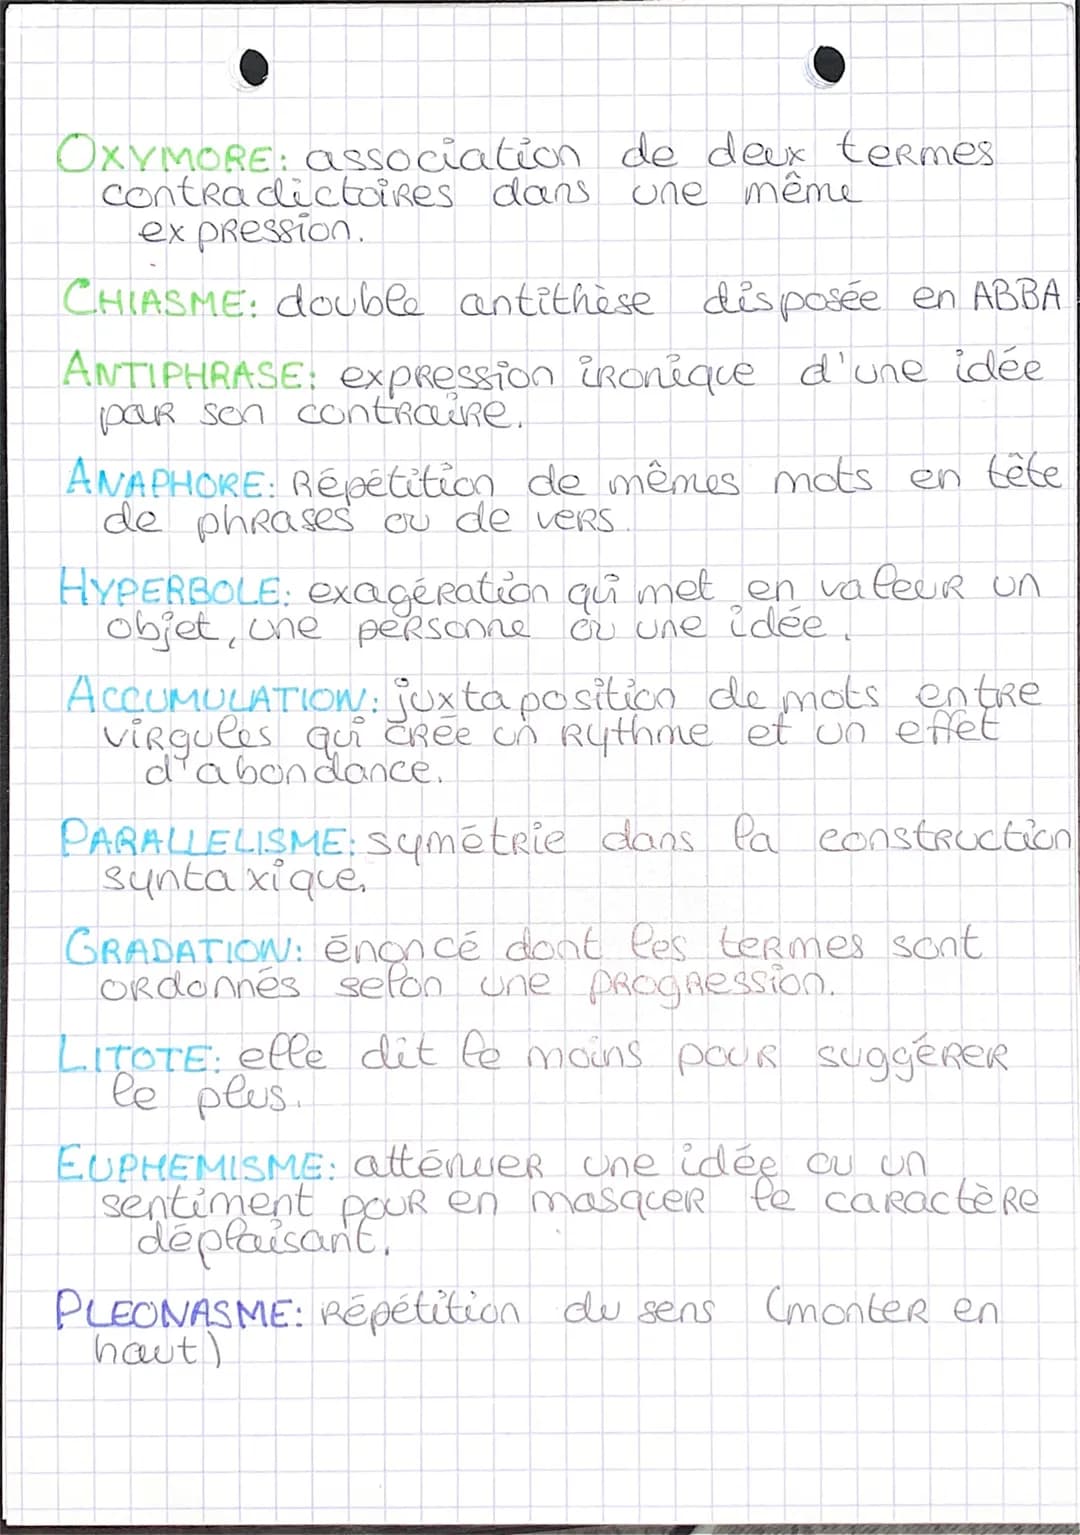 OXYMORE: association de deux termes
contradictoires dans une même
expression.
CHIASME: double antithèse disposée en ABBA
ANTIPHRASE: expression ironique d'une idée
par son contraire.
ANAPHORE: Répétition de mêmes mots en tête
de phrases ou de vers.
HYPERBOLE: exagération qui met en valeur un
objet, une personne ou une idée.
ACCUMULATION: juxtaposition de mots entre
virgules qui crée un rythme et un effet
d'abondance.
PARALLELISME: symétrie dans la construction
syntaxique.
GRADATION: énoncé dont les termes sont
ordonnés selon une progression.
LITOTE: elle dit le moins pour suggérer
le plus.
EUPHEMISME: atténuer une idée ou un
sentiment pour en masquer le caractère
déplaisant.
PLEONASME: Répétition du sens (monter en
haut)